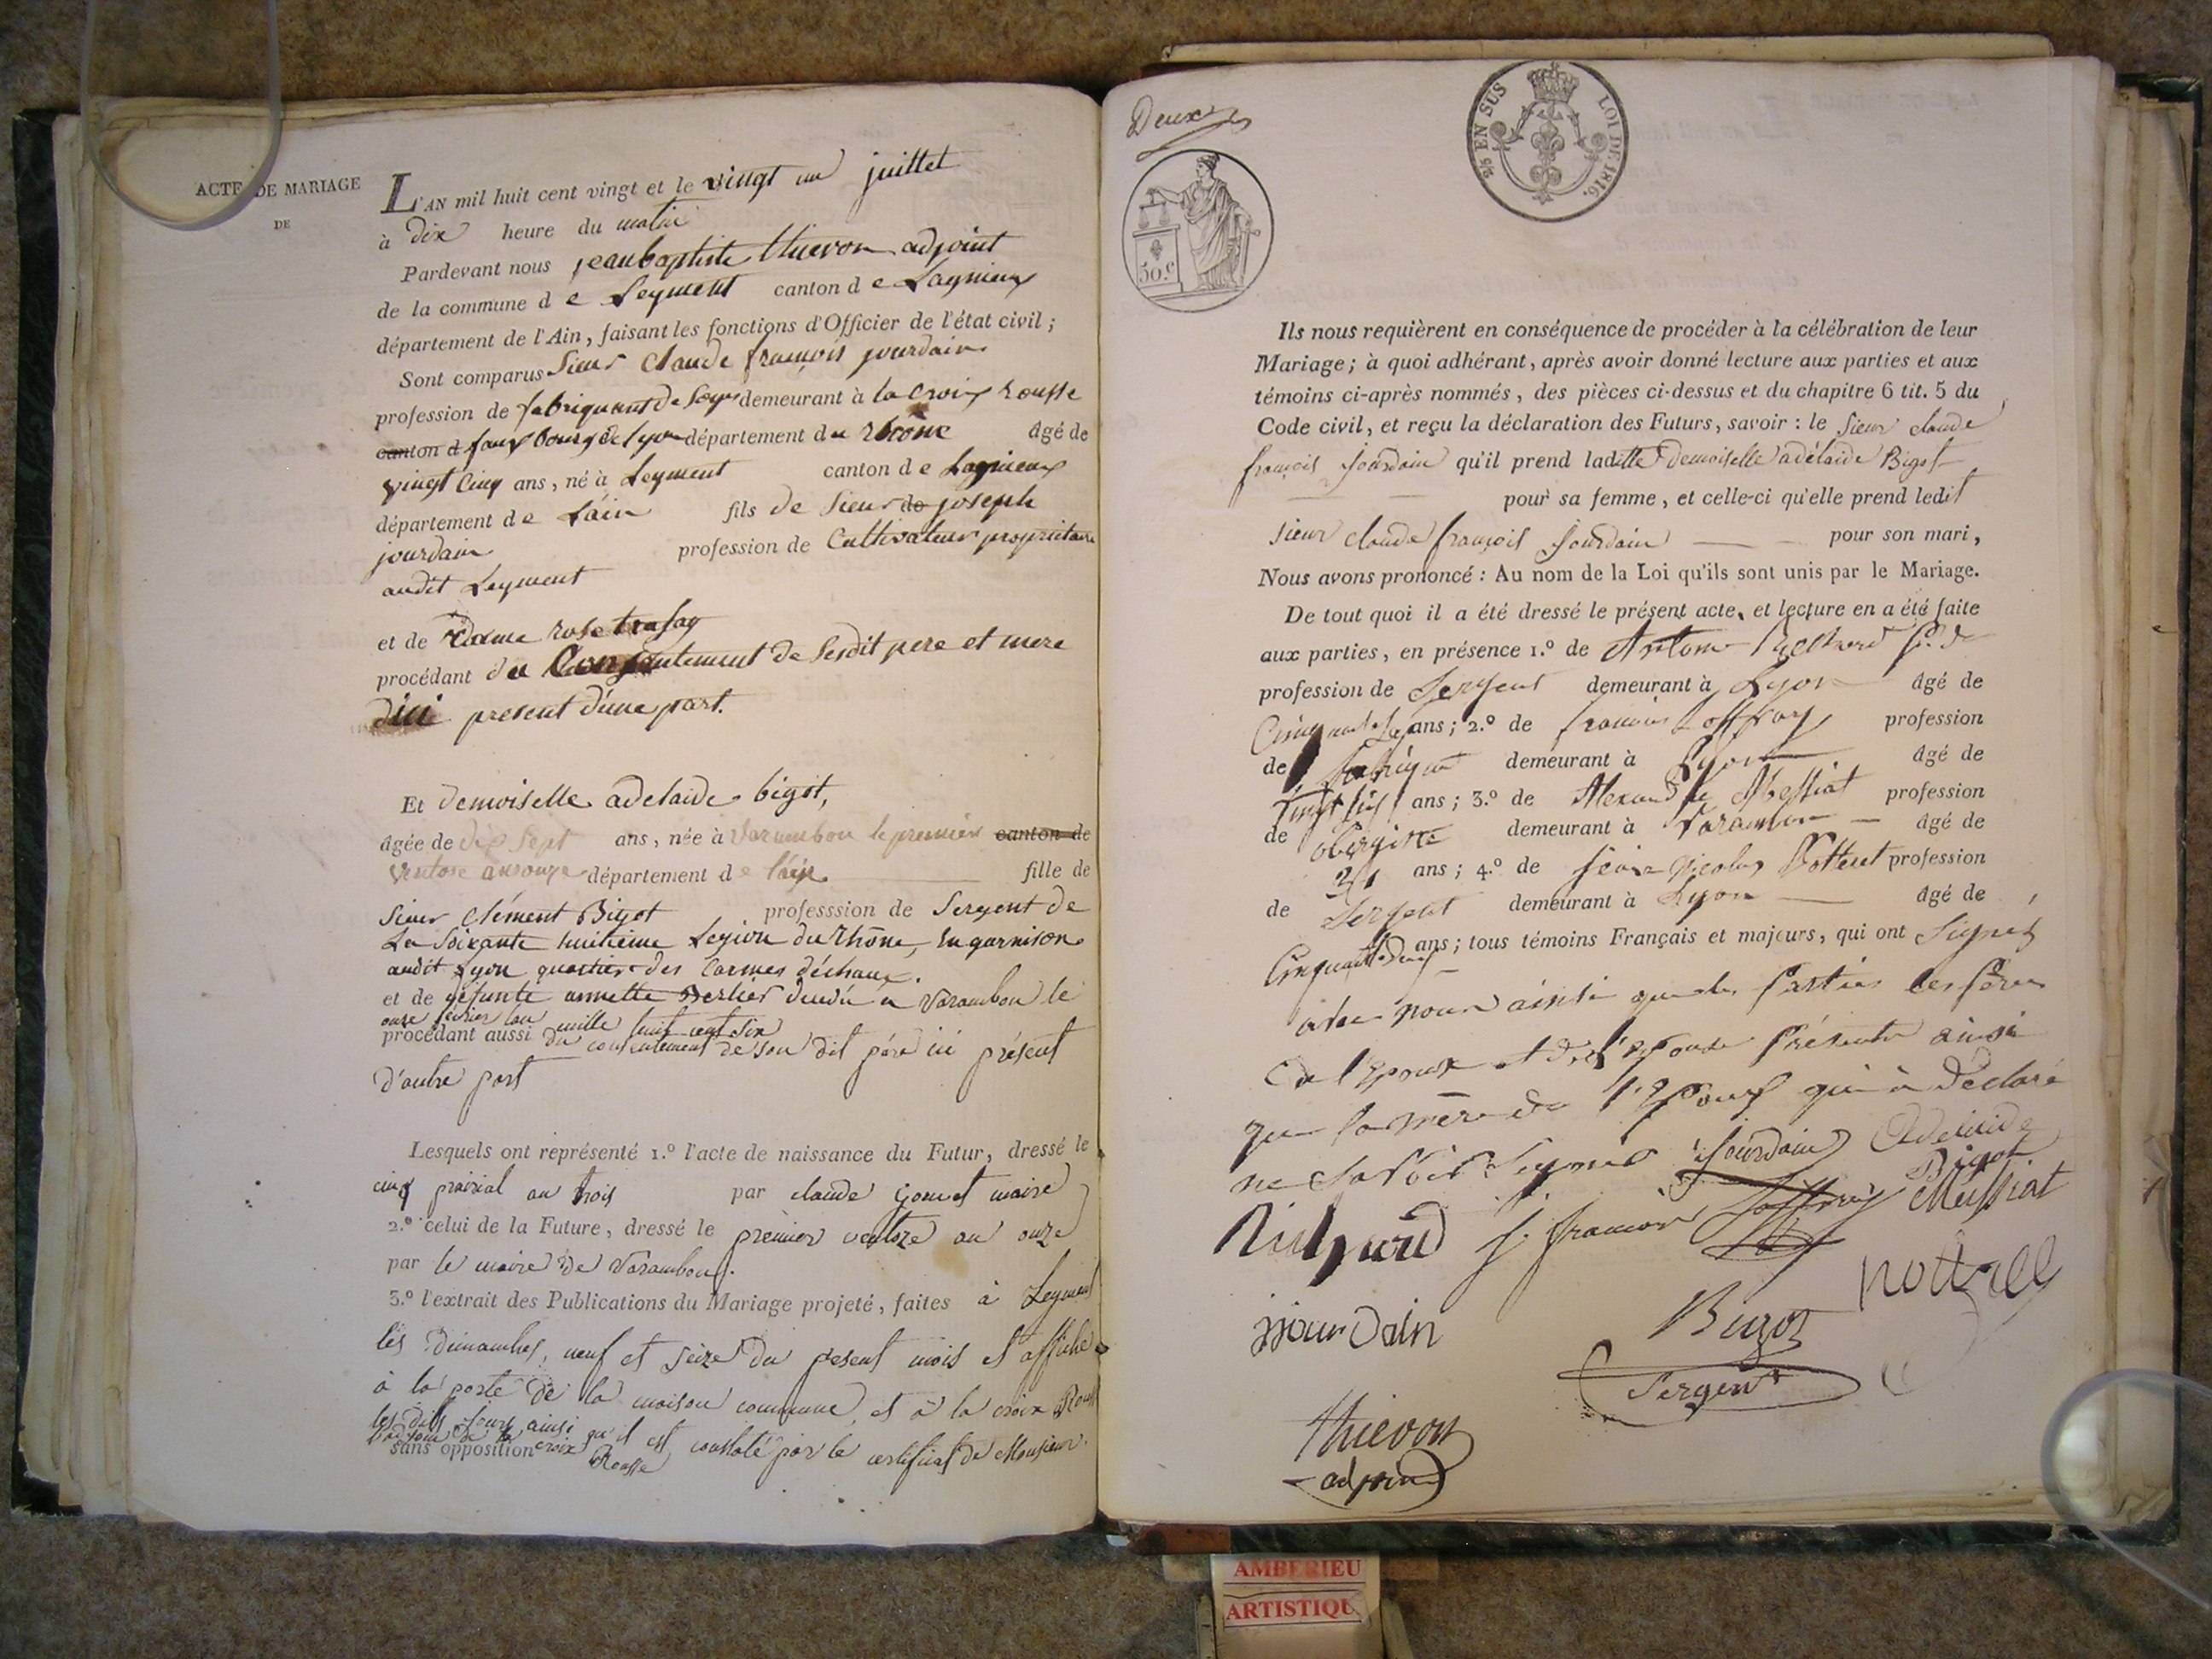 ACTE DE MARIAGE
DE
L'AN mil huit cent vingt et le vingt un juillet
à dix heure du matin
Pardevant nous jean baptiste thievon adjoint
de la commune de Leyment canton de Lagnieux
département de l'Ain, faisant les fonctions d'Officier de l'état civil ;
Sont comparus Sieur Claude françois jourdain
profession de fabriquant de demeurant à la Croix Rousse
canton d faux bourg de Lyon département du Rhône âgé de
vingt cinq ans, né à Leyment canton de Lagnieux
département de L'ain fils de Sieur de joseph
jourdain profession de Cultivateur propriétaire
audit Leyment
et de Dame Rose
procédant du Consentement de Sesdit pere et mere
dici present d'une part.
Et demoiselle adelaide bigot,
âgée de dix sept ans, née à Varambon le premier canton de
Ventose an onze département de l'ain fille de
Sieur Clément Bigot professsion de Sergent de
La Soixante huitième Legion du Rhône, en garnison
audit Lyon quartier des Carmes déchaux.
et de défunte annette Berlier à Varambon le
onze février l'an mille huit cent six
procédant aussi du consentement de son dit père ici présent
d'autre part
Lesquels ont représenté 1.º l'acte de naissance du Futur, dressé le
cinq prairial an trois par claude maire
2.º celui de la Future, dressé le premier ventoze an onze
par le maire de Varambon.
3.º l'extrait des Publications du Mariage projeté, faites à Leyment
les dimanches, neuf et seize du présent mois et affiché
à la porte de la maison commune, et à la croix Rousse
les dits jours ainsi qu'il est constaté par le certificat de Monsieur
l'adjoint de la croix Rousse
sans opposition
Deux
2/10 EN SUS LOI DE 1816.
50.c
Ils nous requièrent en conséquence de procéder à la célébration de leur
Mariage ; à quoi adhérant, après avoir donné lecture aux parties et aux
témoins ci-après nommés, des pièces ci-dessus et du chapitre 6 tit. 5 du
Code civil, et reçu la déclaration des Futurs, savoir : le Sieur claude
françois Jourdain qu'il prend laditte demoiselle adélaide Bigot
pour sa femme, et celle-ci qu'elle prend ledit
sieur claude françois Jourdain pour son mari,
Nous avons prononcé : Au nom de la Loi qu'ils sont unis par le Mariage.
De tout quoi il a été dressé le présent acte, et lecture en a été faite
aux parties, en présence 1.º de Antoine
profession de Sergent demeurant à Lyon âgé de
ans ; 2.º de françois Joffray profession
de demeurant à Lyon âgé de
Vingt ans ; 3.º de Alexandre Messiat profession
de obergiste demeurant à Varambon âgé de
31 ans ; 4.º de Nicolas profession
de Sergent demeurant à Lyon âgé de
Cinquante deux ans ; tous témoins Français et majeurs, qui ont Signés
avec nous ainsi que les Parties les Pères
de l'Epoux et de l'Epouse Présents ainsi
que la mère de l'Epoux qui à déclaré
ne Savoir Signer Jourdain Adelaide
Bigot
Richard f. francois Joffray Messiat
jjourdain
Bigot
Sergent
thievon
adjoint
AMBERIEU
ARTISTIQU